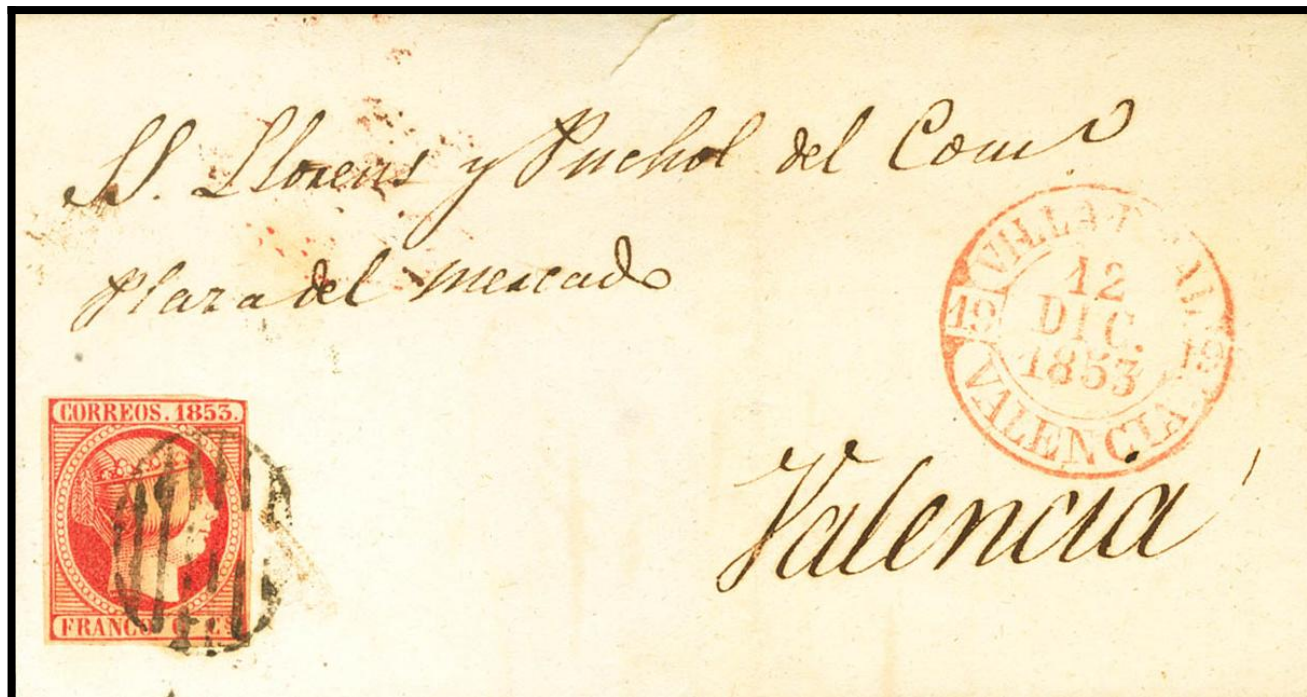 SS. Llorens y Puchol del Comº
Plaza del Mercado
Valencia
12
DIC.
1853
19
19
VALENCIA
CORREOS. 1853.
FRANCO 6 Cs